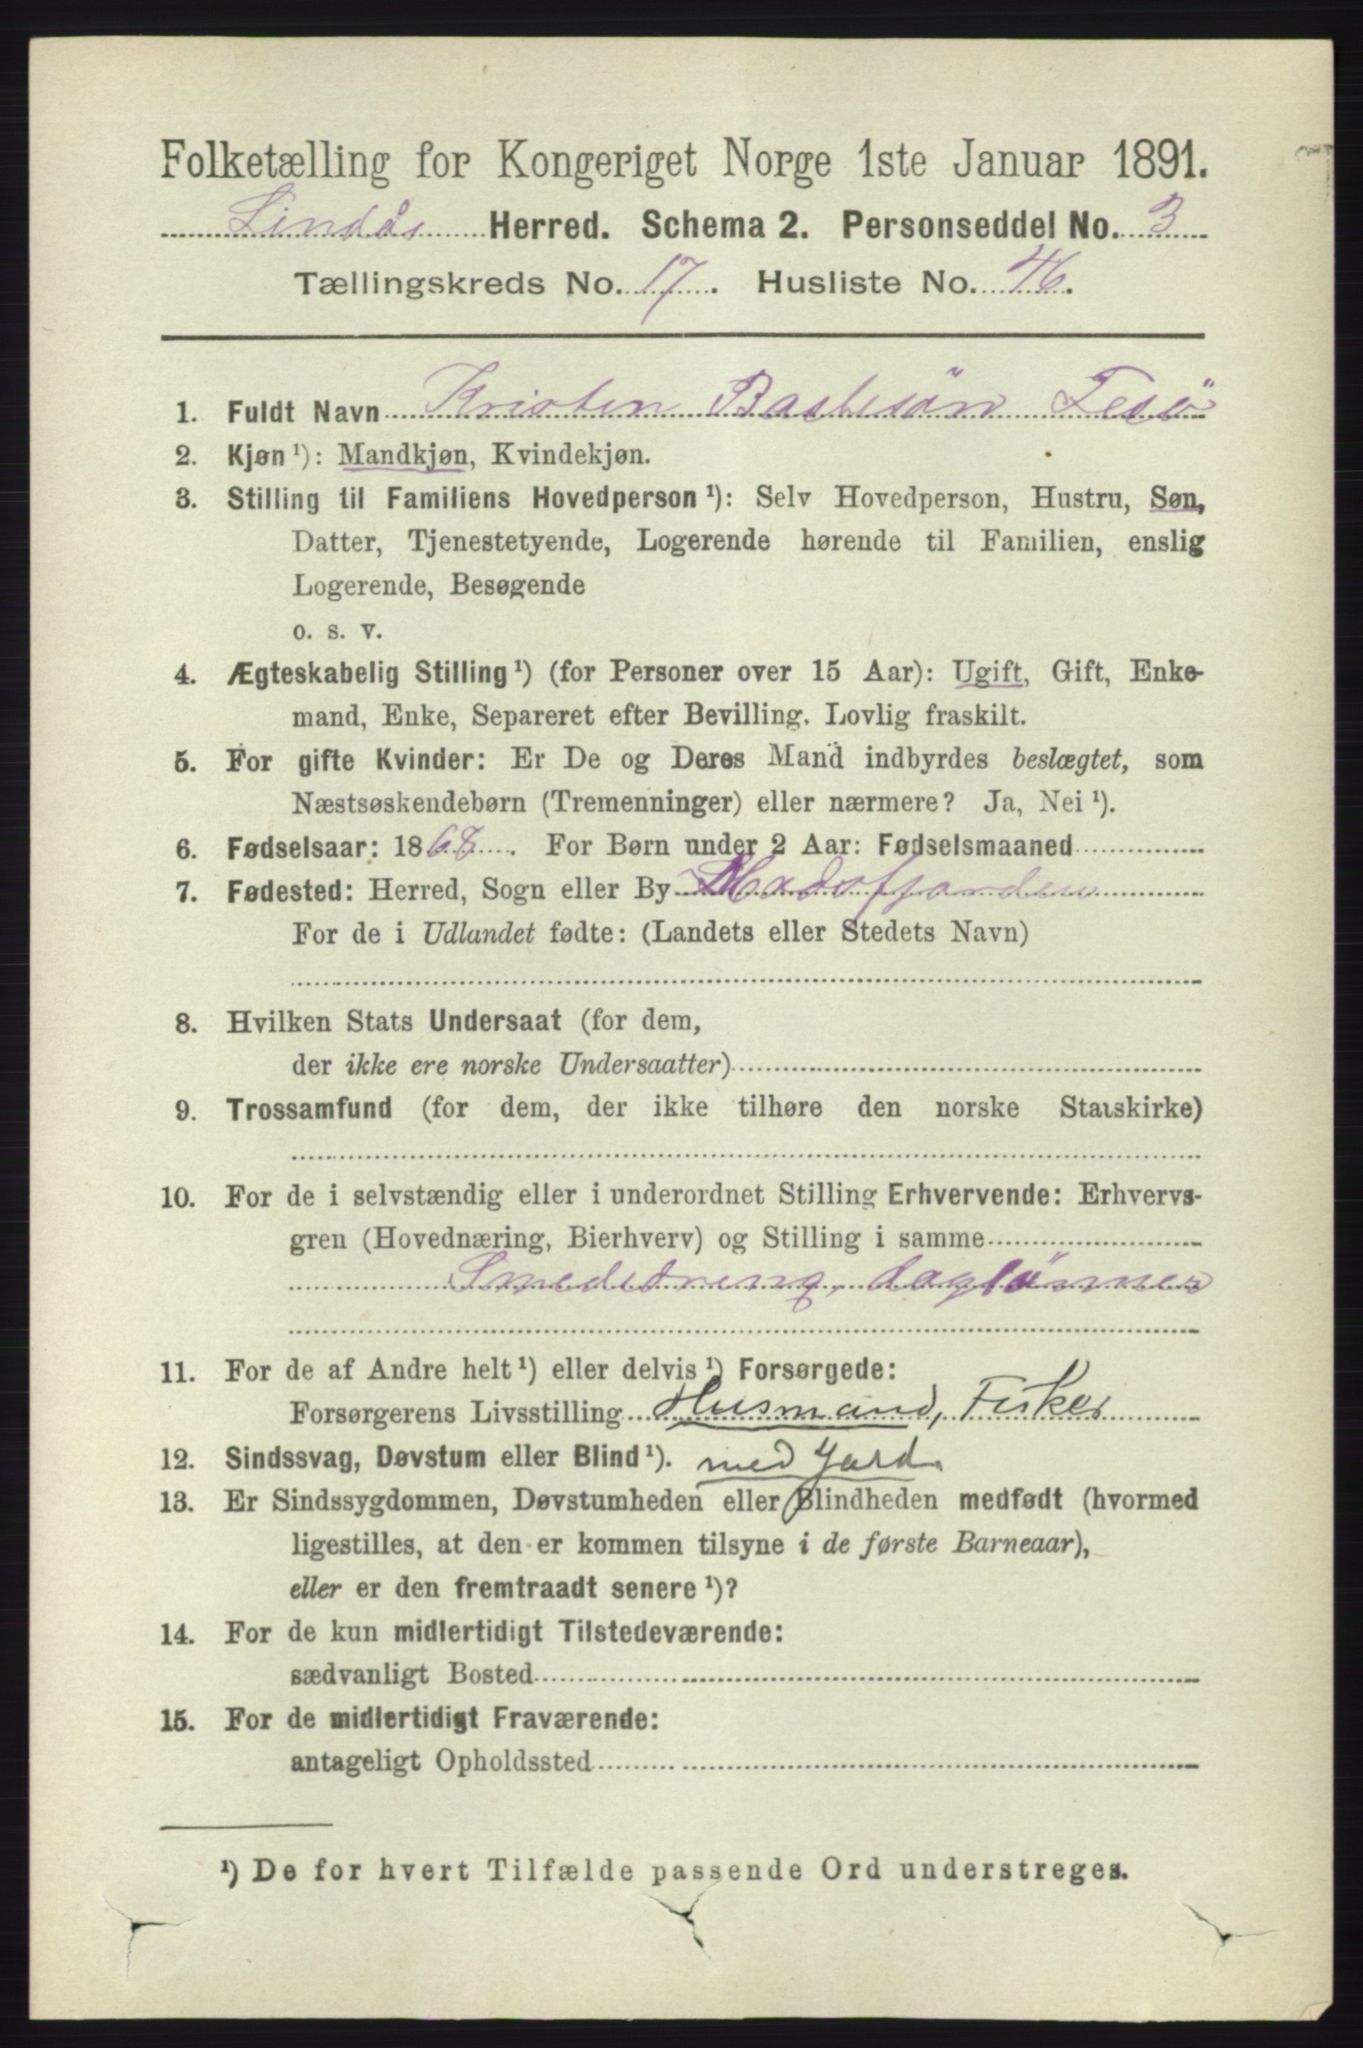 Folketælling for Kongeriget Norge 1ste Januar 1891.
Lindås Herred. Schema 2. Personseddel No. 3
Tællingskreds No. 17. Husliste No. 46.
1. Fuldt Navn Kristen Fesö
2. Kjøn ¹): Mandkjøn, Kvindekjøn.
3. Stilling til Familiens Hovedperson ¹): Selv Hovedperson, Hustru, Søn,
Datter, Tjenestetyende, Logerende hørende til Familien, enslig
Logerende, Besøgende
o. s. v.
4. Ægteskabelig Stilling ¹) (for Personer over 15 Aar): Ugift, Gift, Enke-
mand, Enke, Separeret efter Bevilling. Lovlig fraskilt.
5. For gifte Kvinder: Er De og Deres Mand indbyrdes beslægtet, som
Næstsøskendebørn (Tremenninger) eller nærmere? Ja, Nei ¹).
6. Fødselsaar: 1868. For Børn under 2 Aar: Fødselsmaaned
7. Fødested: Herred, Sogn eller By
For de i Udlandet fødte: (Landets eller Stedets Navn)
8. Hvilken Stats Undersaat (for dem,
der ikke ere norske Undersaatter)
9. Trossamfund (for dem, der ikke tilhøre den norske Statskirke)
10. For de i selvstændig eller i underordnet Stilling Erhvervende: Erhvervs-
gren (Hovednæring, Bierhverv) og Stilling i samme
Smededreng, daglönner
11. For de af Andre helt ¹) eller delvis ¹) Forsørgede:
Forsørgerens Livsstilling Husmand, Fisker
12. Sindssvag, Døvstum eller Blind ¹). med Jord.
13. Er Sindssygdommen, Døvstumheden eller Blindheden medfødt (hvormed
ligestilles, at den er kommen tilsyne i de første Barneaar),
eller er den fremtraadt senere ¹)?
14. For de kun midlertidigt Tilstedeværende:
sædvanligt Bosted
15. For de midlertidigt Fraværende:
antageligt Opholdssted
¹) De for hvert Tilfælde passende Ord understreges.